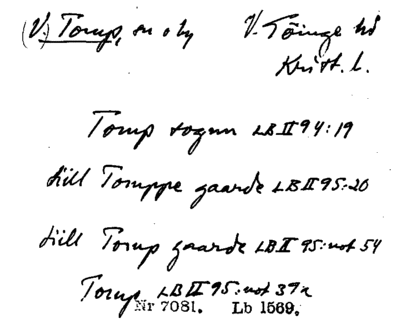 (V.) Torup, sn o by V. Göinge hd
Krist. l.
Torup sogun LB II 94:19
till Toruppe gaarde LB II 95:20
till Torup gaarde LB II 95:not 54
Torup LB II 95:not 39a
Nr 7081. Lb 1569.